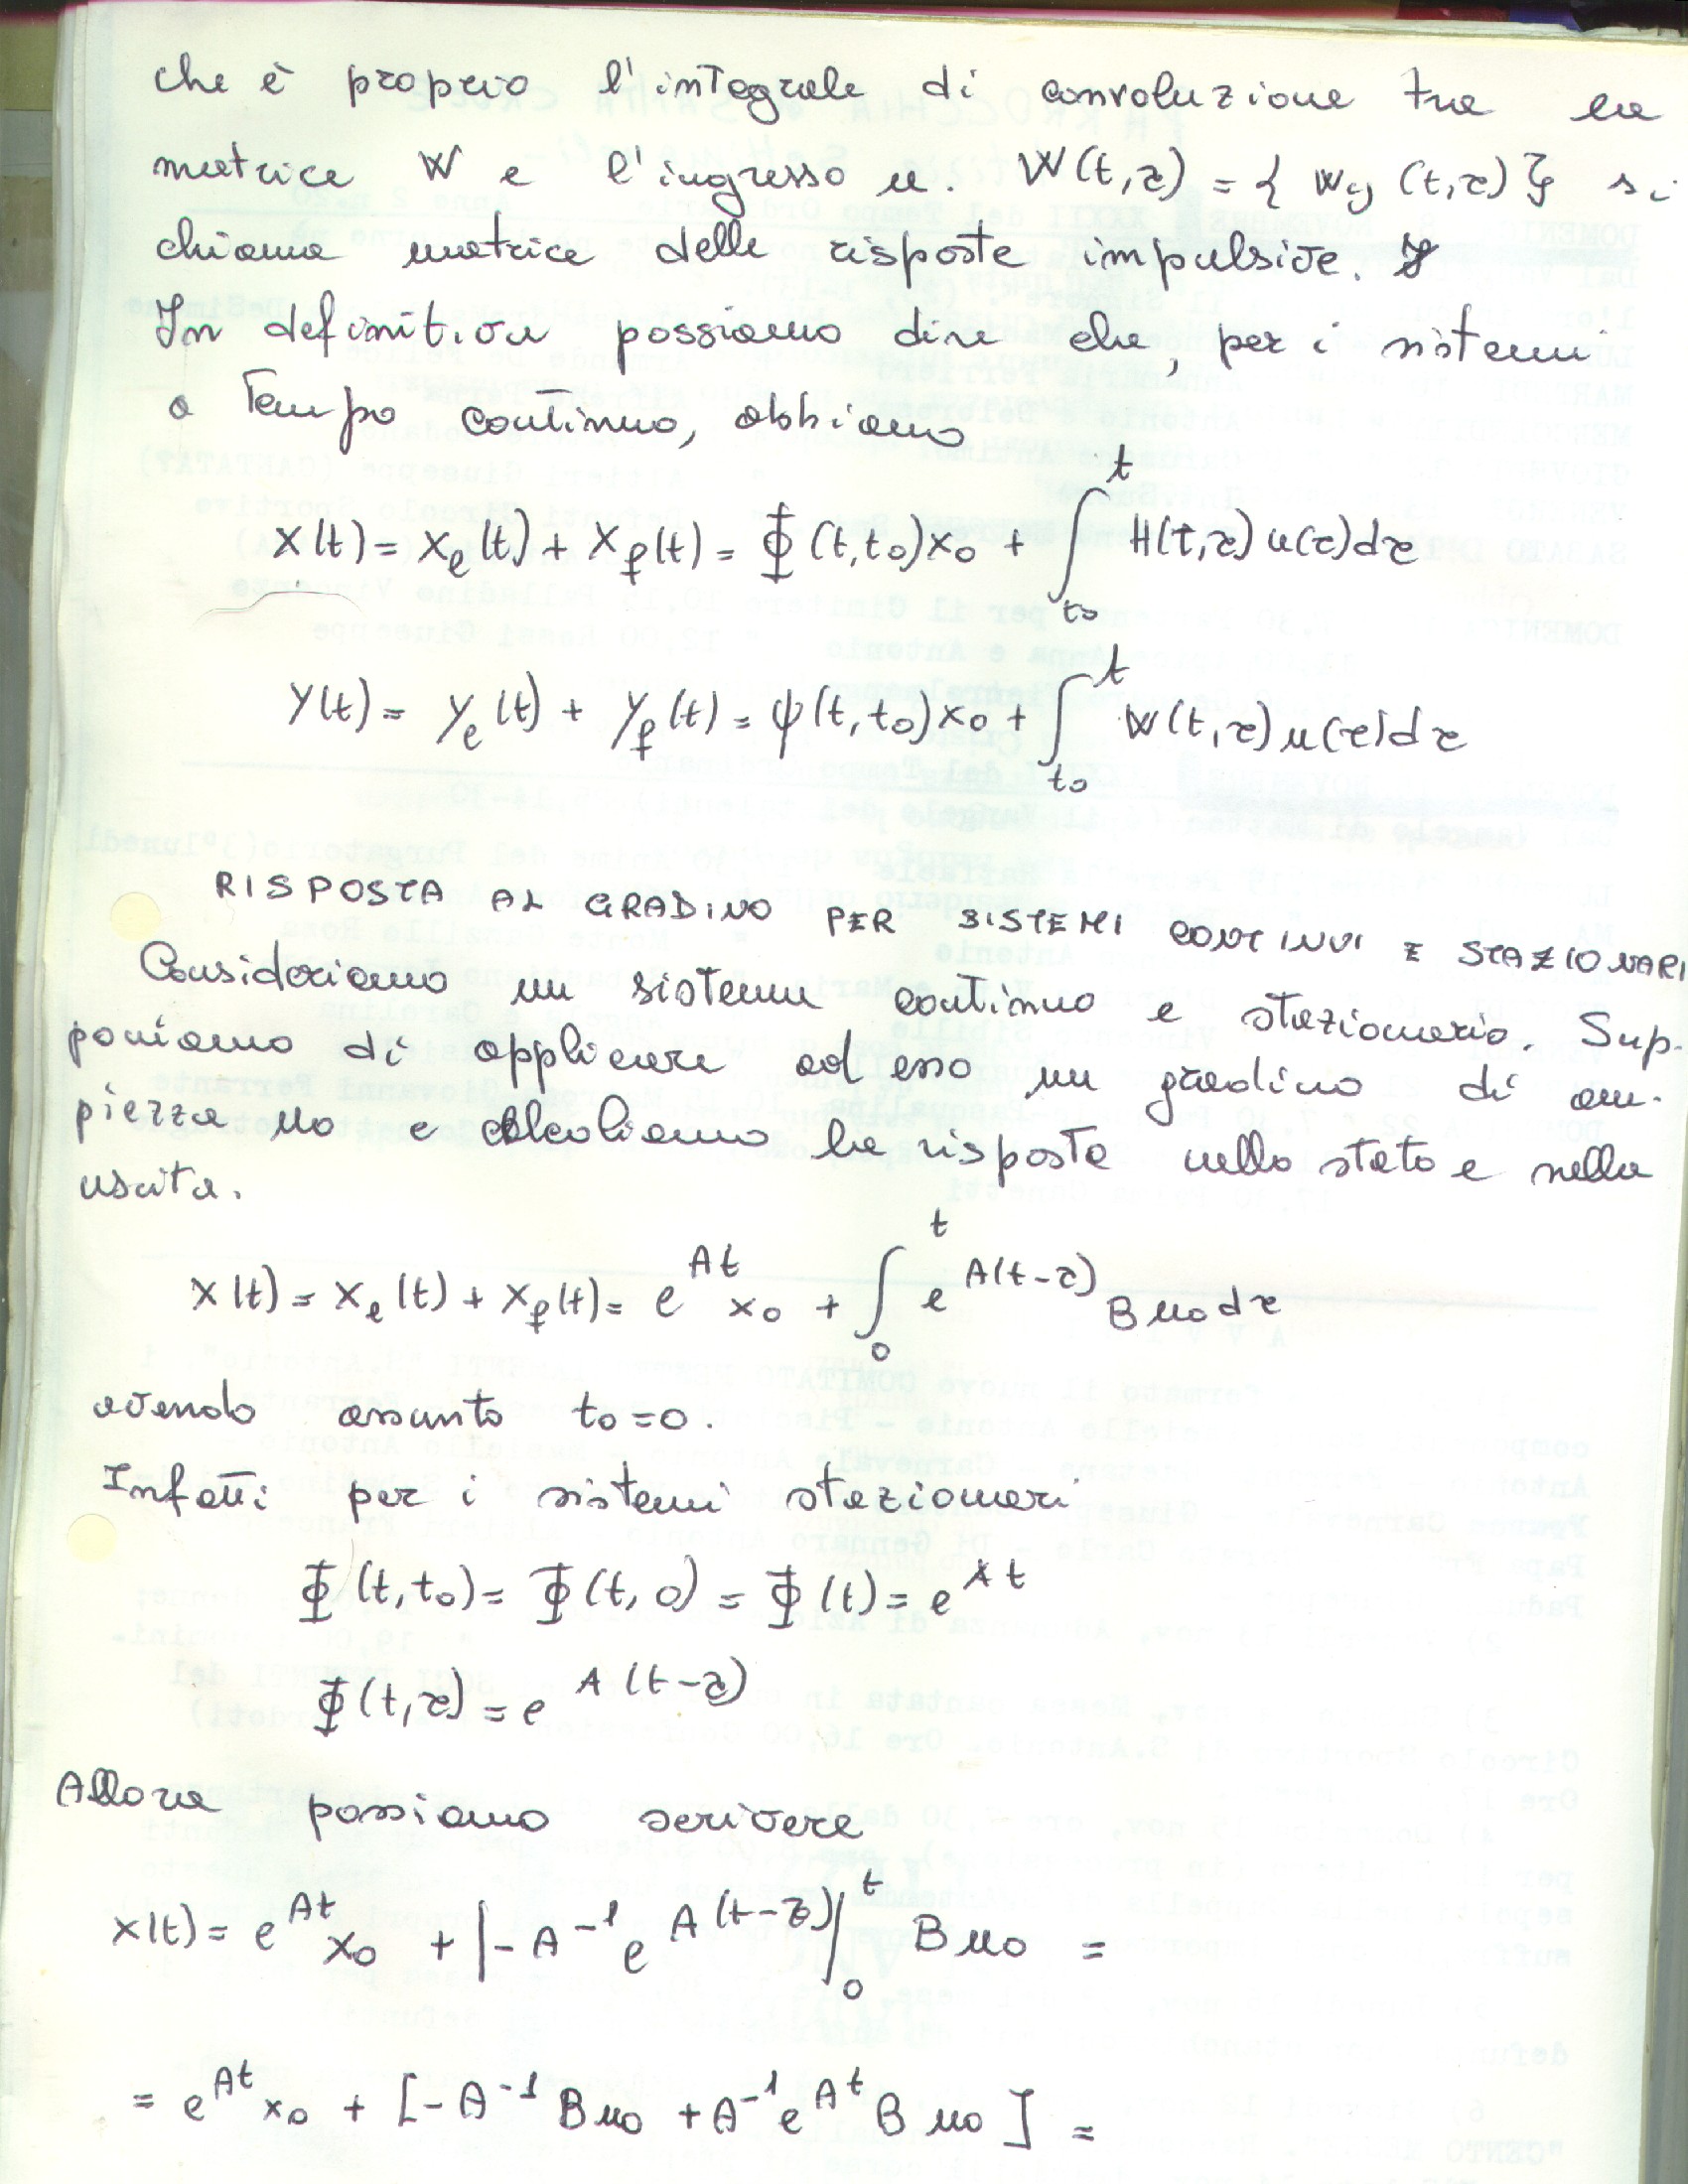 che è proprio l'integrale di convoluzione tra la
matrice W e l'ingresso u. W(t,τ) = { wij (t,τ) } si
chiama matrice delle risposte impulsive.
In definitiva possiamo dire che, per i sistemi
a Tempo continuo, abbiamo
x(t) = xe(t) + xf(t) = Φ(t,t0)x0 + ∫t0^t H(t,τ)u(τ)dτ
y(t) = ye(t) + yf(t) = ψ(t,t0)x0 + ∫t0^t W(t,τ)u(τ)dτ
RISPOSTA AL GRADINO PER SISTEMI CONTINUI E STAZIONARI
Consideriamo un sistema continuo e stazionario. Sup-
poniamo di applicare ad esso un gradino di am-
piezza u0 e calcoliamo la risposta nello stato e nella
uscita.
x(t) = xe(t) + xf(t) = e^At x0 + ∫0^t e^A(t-τ) B u0 dτ
avendo assunto t0=0.
Infatti per i sistemi stazionari
Φ(t,t0) = Φ(t,0) = Φ(t) = e^At
Φ(t,τ) = e^A(t-τ)
Allora possiamo scrivere
x(t) = e^At x0 + |-A^-1 e^A(t-τ)|0^t B u0 =
= e^At x0 + [-A^-1 B u0 + A^-1 e^At B u0] =